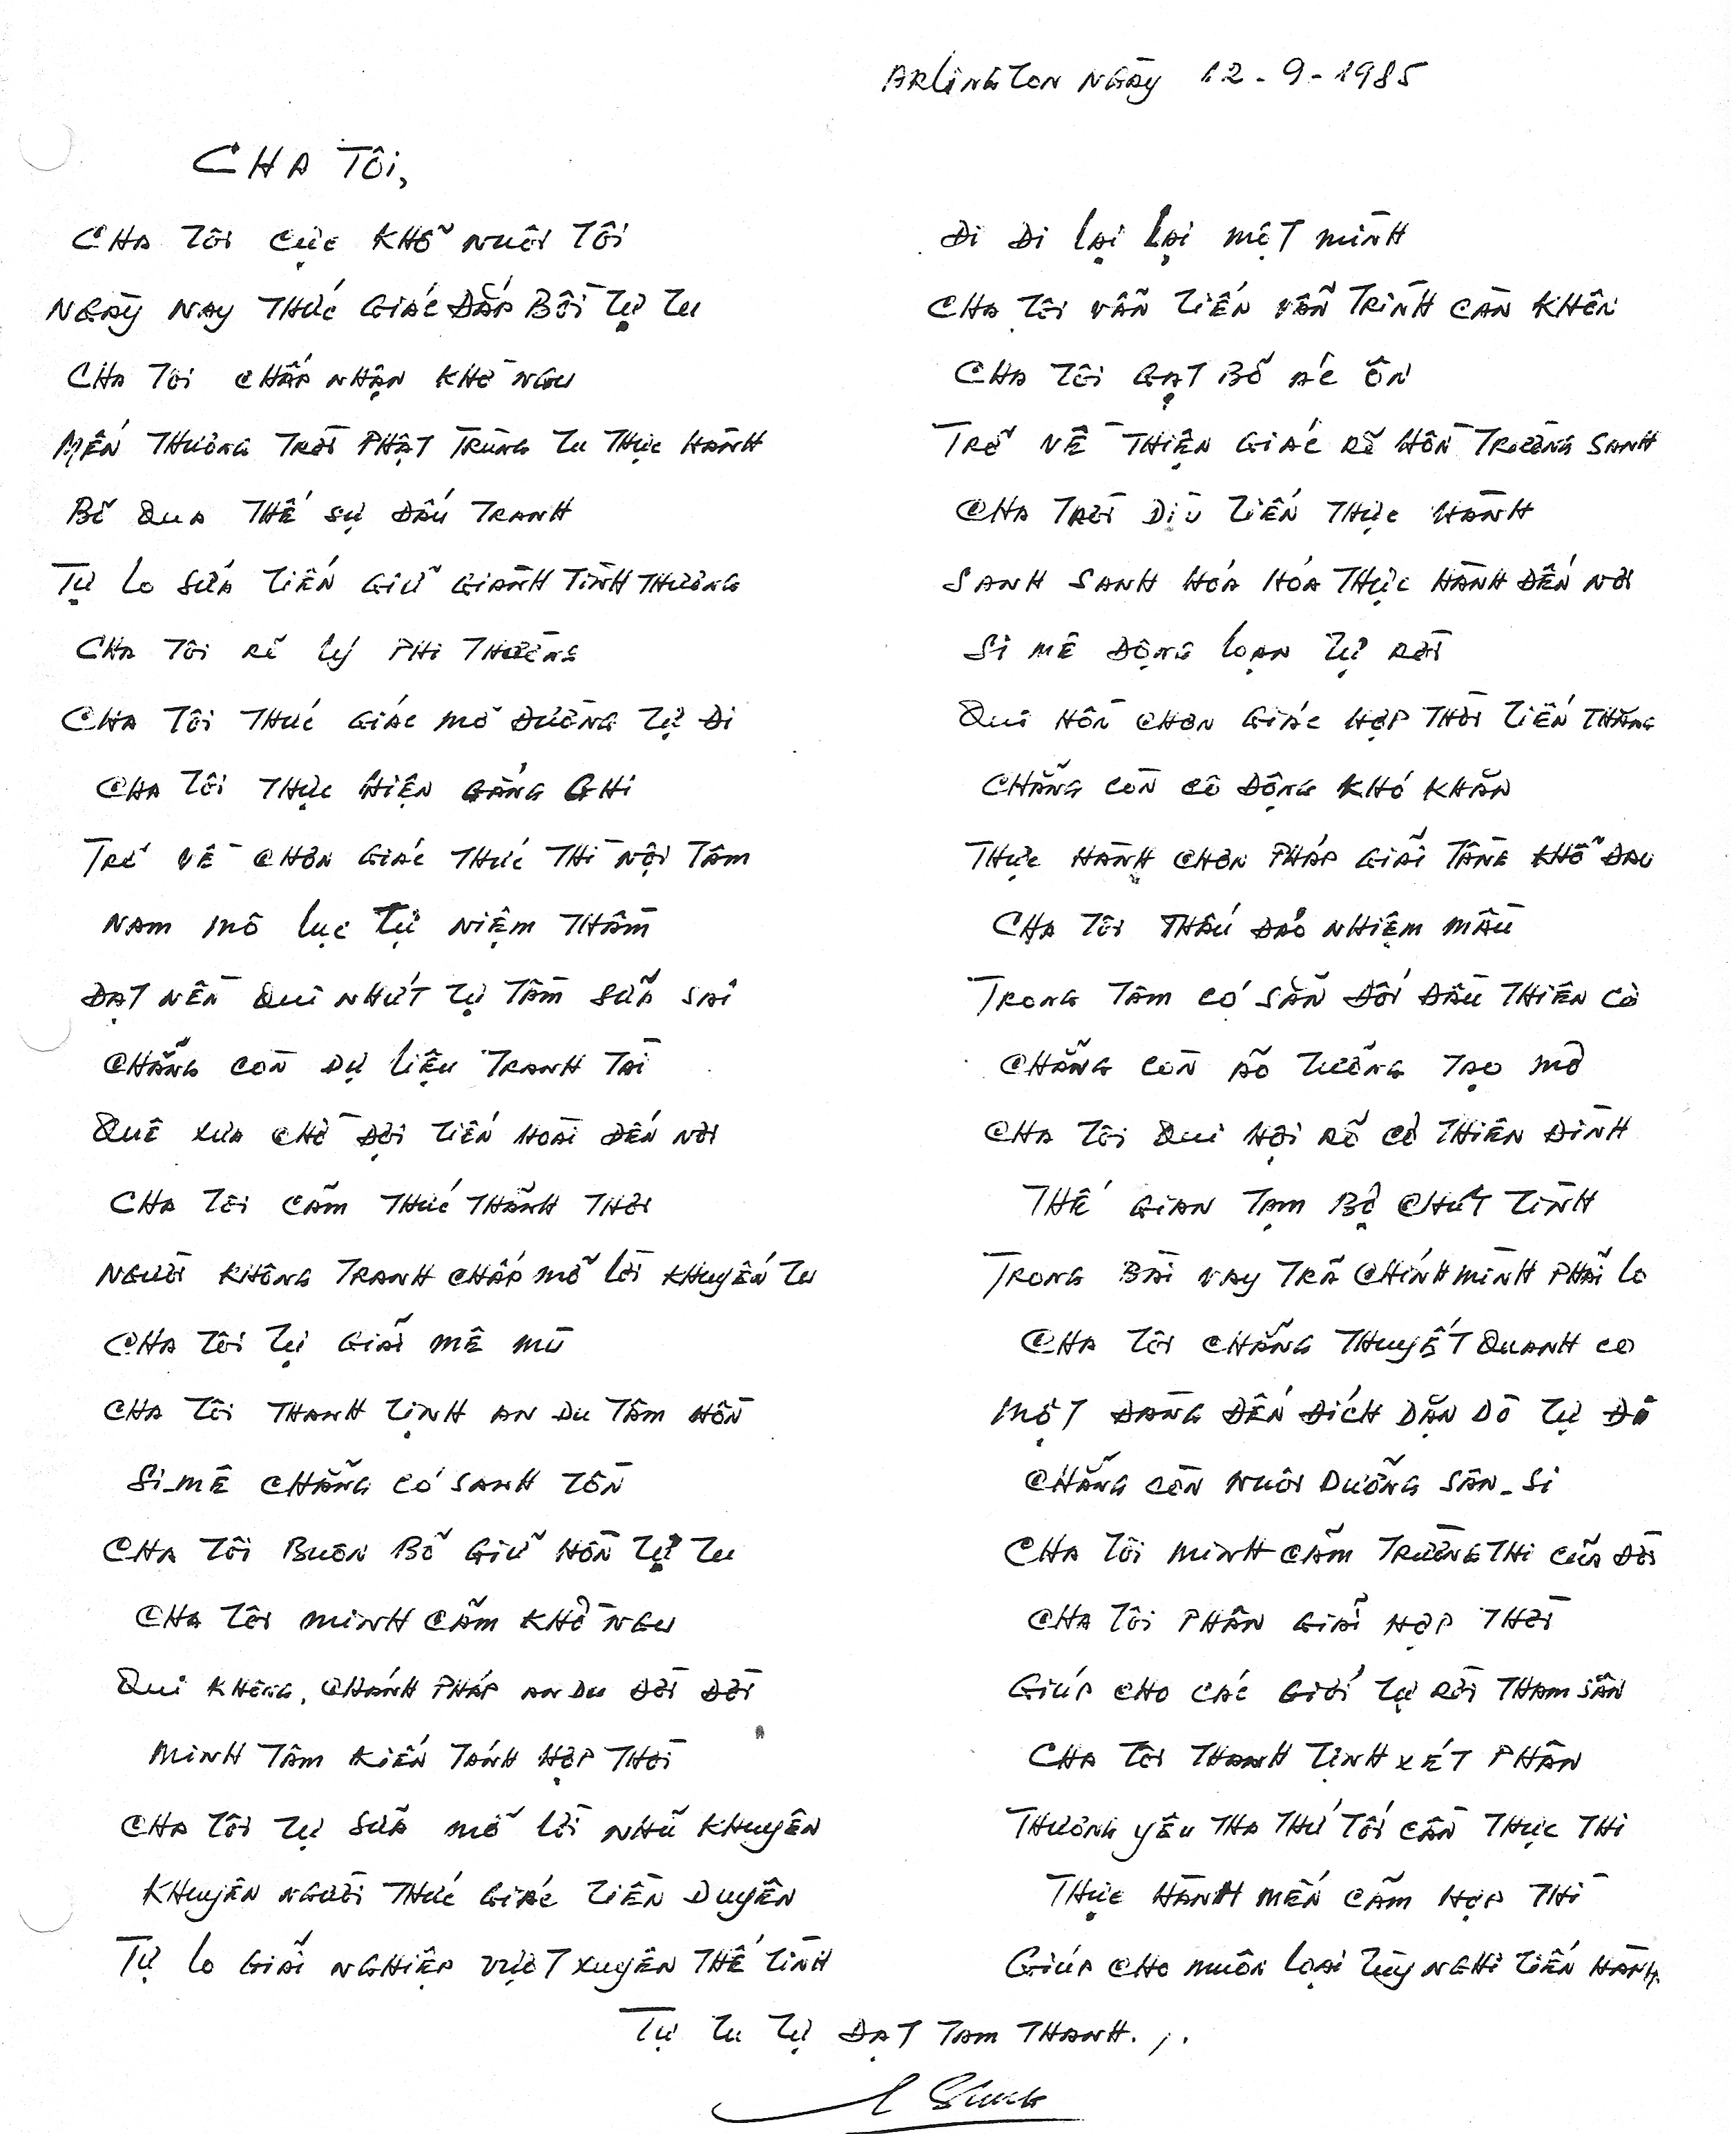 Arlington ngày 12-9-1985
CHA TÔI,
Cha tôi cực khổ nuôi tôi
Ngày nay thức giác đắp bồi tự tu
Cha tôi chấp nhận khờ ngu
Mến thương trời phật trùng tu thực hành
Bỏ qua thế sự đấu tranh
Tự lo sửa tiến giữ giành tình thương
Cha tôi rõ lý phi thường
Cha tôi thức giác mở đường tự đi
Cha tôi thực hiện gắng ghi
Trở về chơn giác thức thì nội tâm
Nam mô lục tự niệm thầm
Đạt nền qui nhứt tự tầm sửa sai
Chẳng còn dự liệu tranh tài
Quê xưa chờ đợi tiến hoài đến nơi
Cha tôi cảm thức thảnh thơi
Người không tranh chấp mở lời khuyến tu
Cha tôi tự giải mê mù
Cha tôi thanh tịnh an du tâm hồn
Si-mê chẳng có sanh tồn
Cha tôi buôn bỏ giữ hồn tự tu
Cha tôi minh cảm khờ ngu
Qui không, chánh pháp an du đời đời
Minh tâm kiến tánh hợp thời
Cha tôi tự sửa mở lời nhủ khuyên
Khuyên người thức giác tiền duyên
Tự lo giải nghiệp vượt xuyên thế tình
Đi đi lại lại một mình
Cha tôi vẫn tiến vẫn trình càn khôn
Cha tôi gạt bỏ ác ôn
Trở về thiện giác rõ hồn trường sanh
Cha trời dìu tiến thực hành
Sanh sanh hóa hóa thực hành đến nơi
Si mê động loạn tự rời
Qui hồn chơn giác hợp thời tiến thăng
Chẳng còn cô động khó khăn
Thực hành chơn pháp giải tầng khổ đau
Cha tôi thấu đáo nhiệm mầu
Trong tâm có sẵn đối đầu thiên cơ
Chẳng còn ảo tưởng tạo mờ
Cha tôi qui hội rõ cơ thiên đình
Thế gian tạm bợ chút tình
Trong bài vay trả chính mình phải lo
Cha tôi chẳng thuyết quanh co
Một đàng đến đích dặn dò tự đò
Chẳng còn nuôi dưỡng sân-si
Cha tôi minh cảm trường thi của đời
Cha tôi phân giải hợp thời
Giúp cho các giới tự rời tham sân
Cha tôi thanh tịnh xét phân
Thương yêu tha thứ tối cần thực thi
Thực hành mến cảm hợp thì
Giúp cho muôn loại tùy nghi tiến hành
Tự tu tự đạt tam thanh.